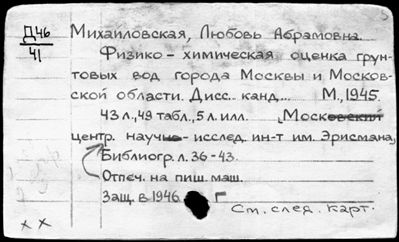 Д46
41
Михайловская, Любовь Абрамовна.
Физико-химическая оценка грун-
товых вод города Москвы и Москов-
ской области. Дисс. канд... М., 1945.
43 л., 49 табл., 5 л. илл. Московский
центр. научно-исслед. ин-т им. Эрисмана,
Библиогр. л. 36-43.
Отпеч. на пиш. маш.
Защ. в 1946 г
См. след. карт.
х х